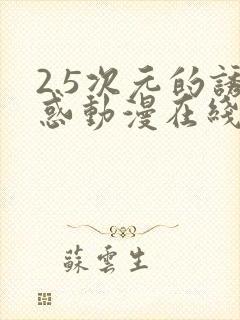 2.5次元的誘
惑動漫在綫
蘇雲生